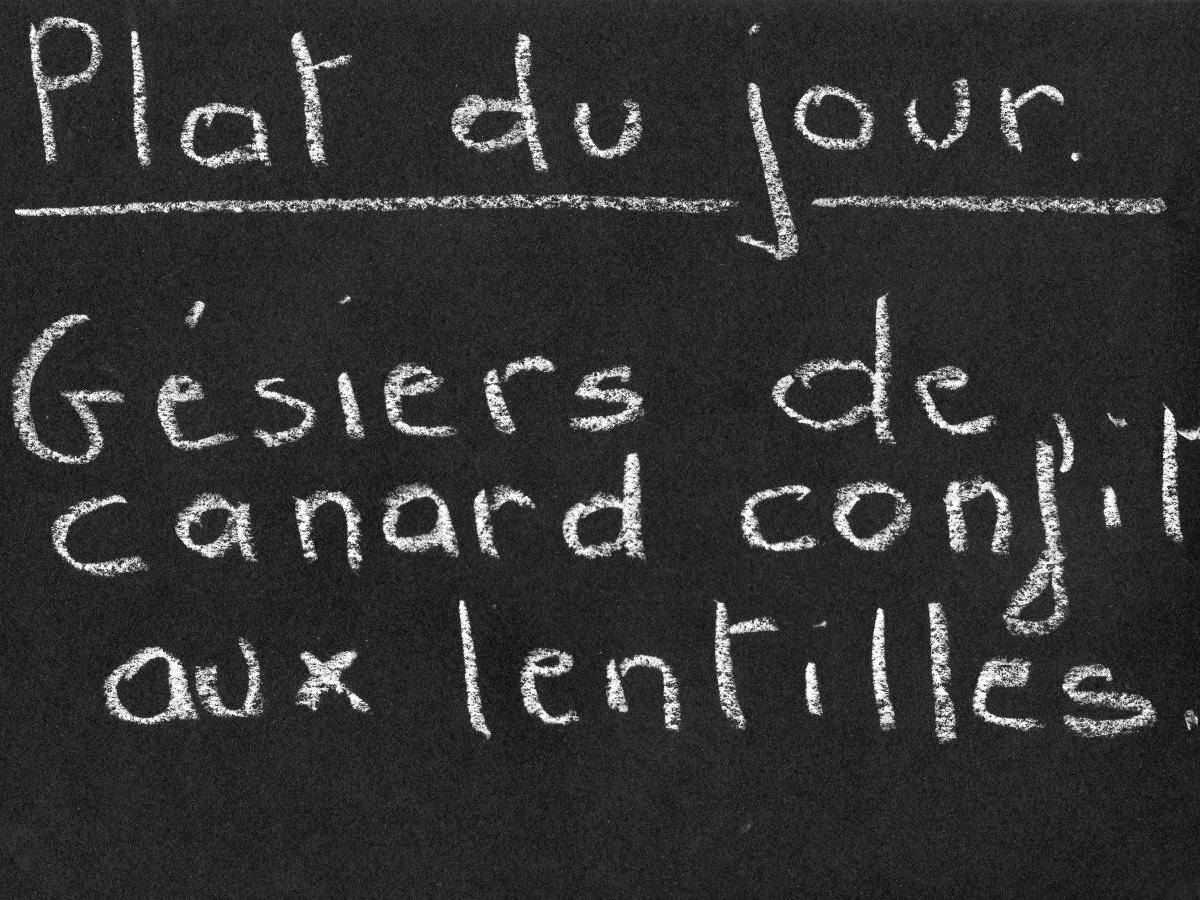 Plat du jour.
Gésiers de
canard confit
aux lentilles.